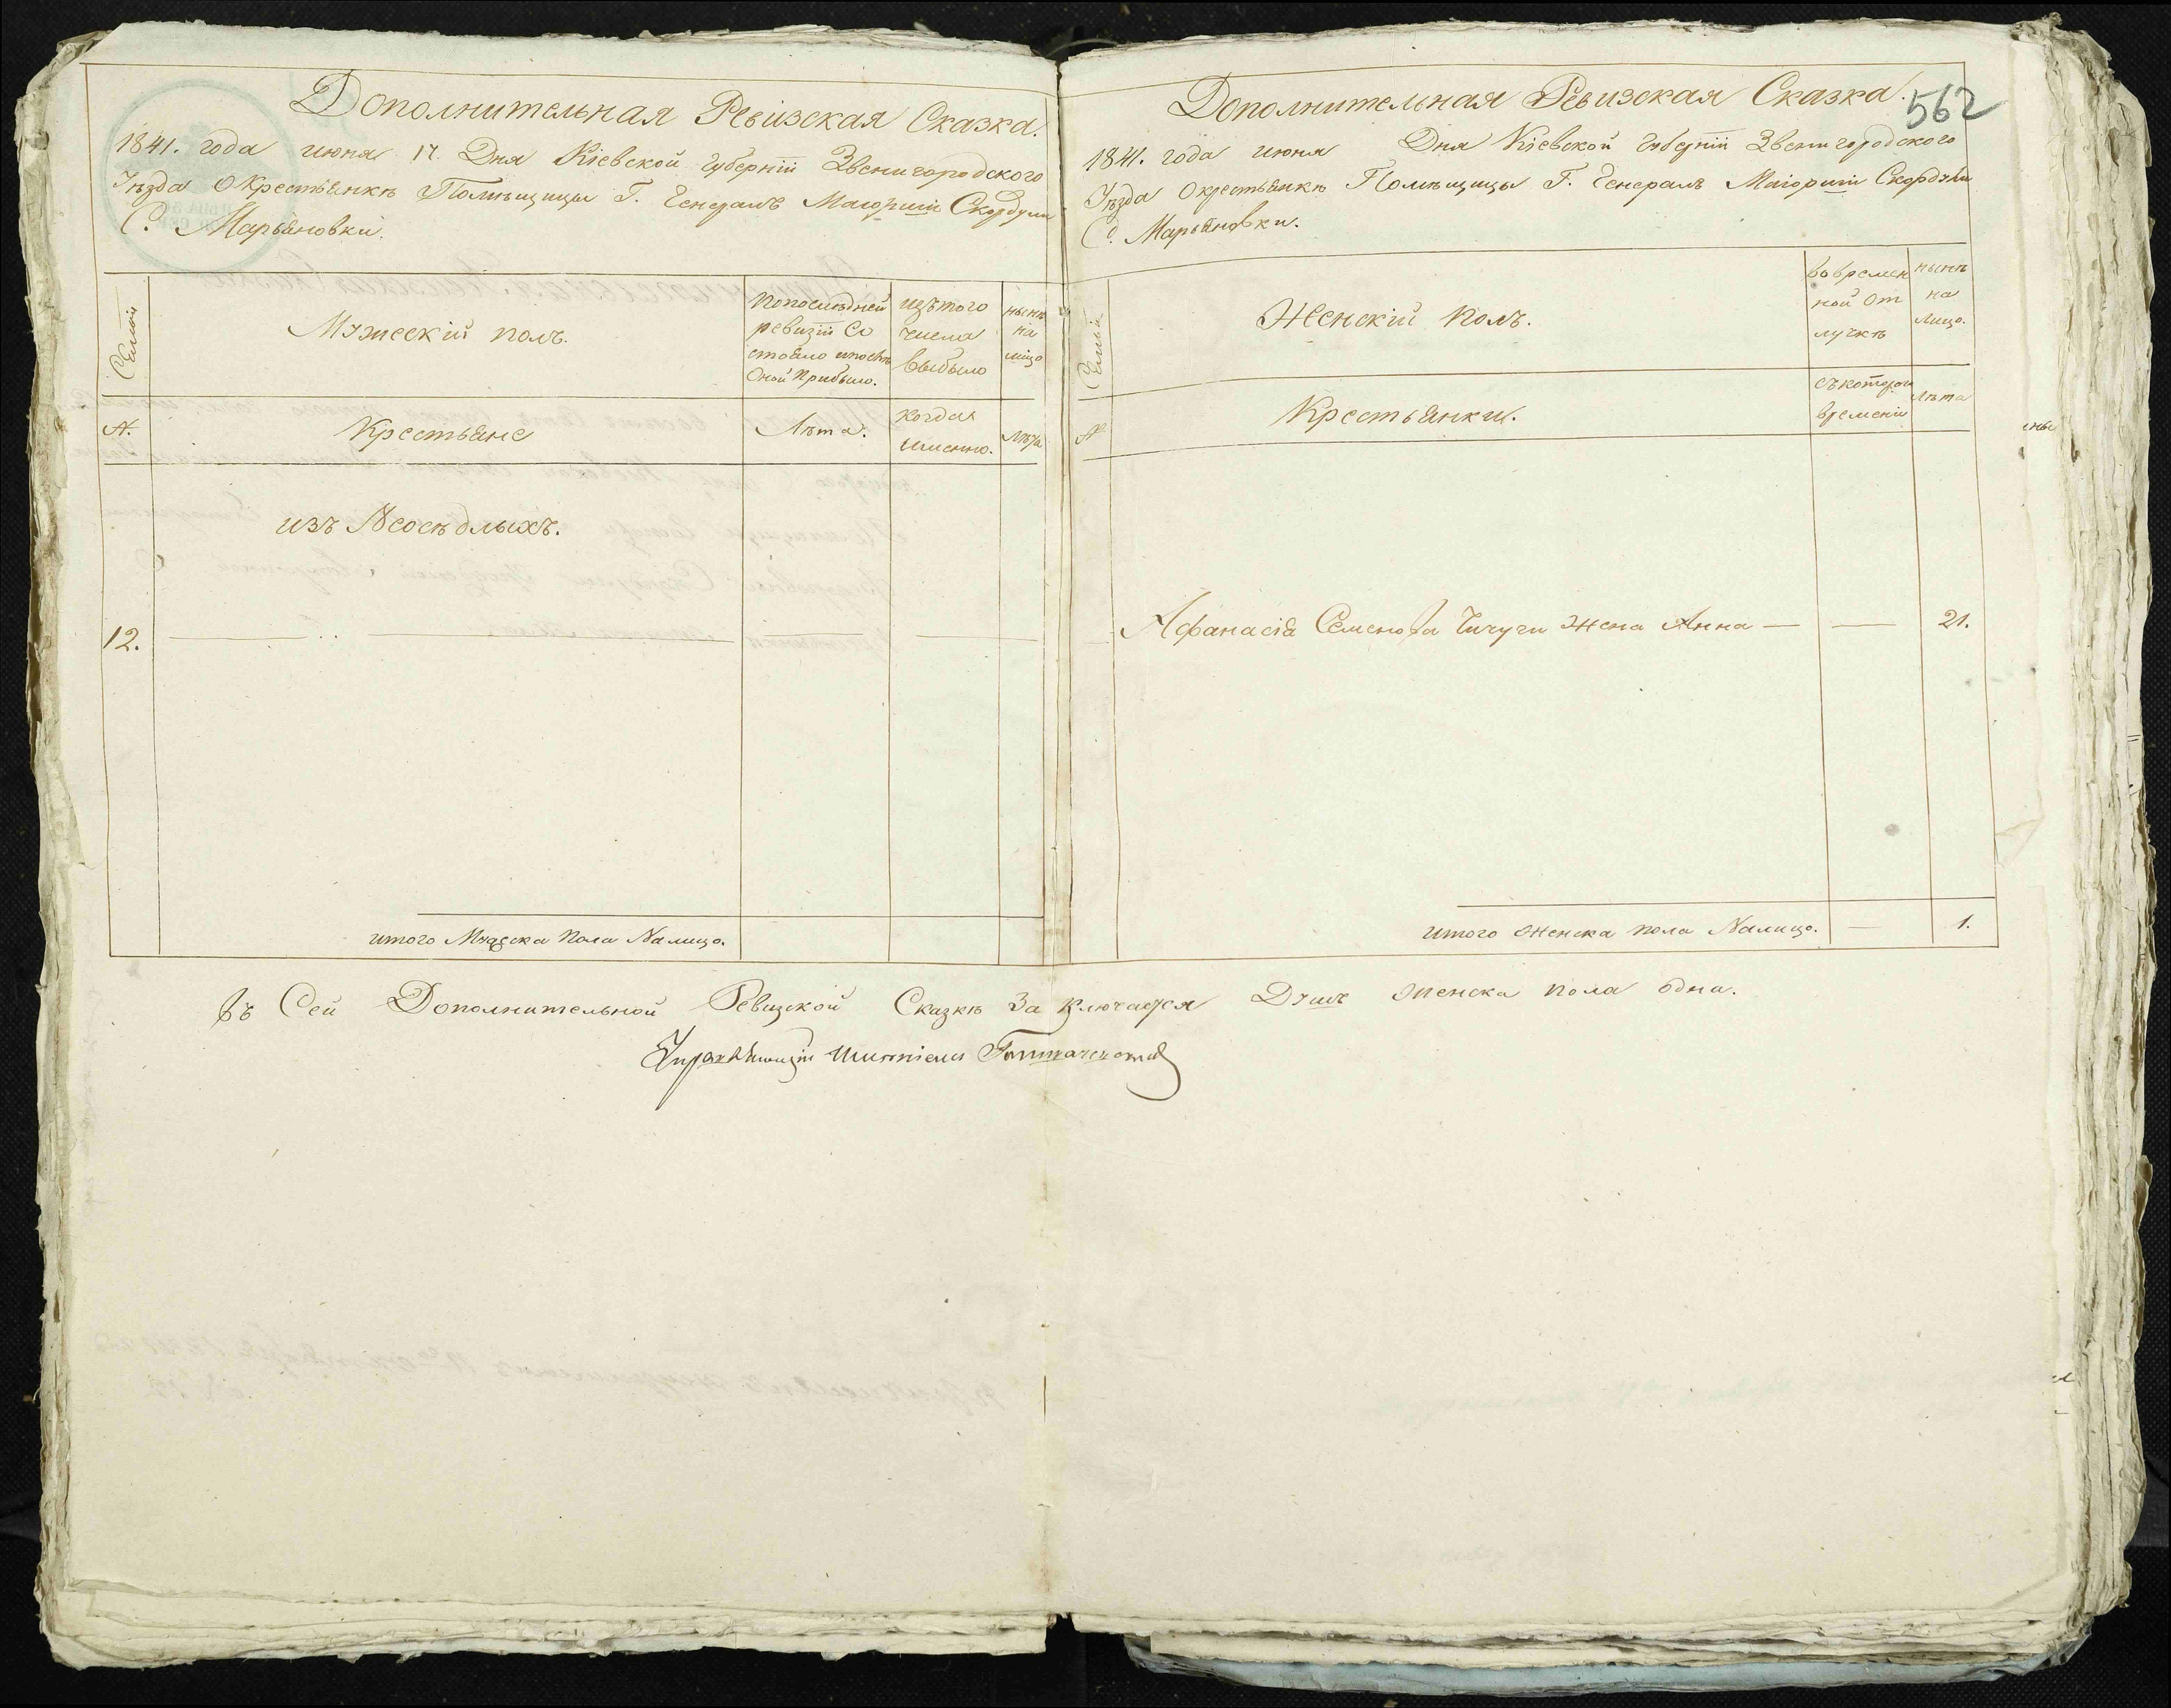 Дополнительная Ревизская Сказка.
1841. года июня 17. Дня Кіевской губерніи Звенигородского
Уѣзда Окрестьянкѣ Помѣщицы Г. Генералъ Маіорши Скордули
С. Марьяновки.
Семьи
Мужескій полъ.
Попослѣдней
ревизіи Со
стояло ипослѣ
Оной Прибыло.
изътого
числа
выбыло
нынѣ
на
лицо
№.
Крестьяне
Лѣта.
Когда
Именно.
Лѣта
изъ Неосѣдлыхъ.
12.
итого Мужеска Пола Налицо.
Дополнительная Ревизская Сказка.
562
1841. года июня Дня Кіевской губерніи Звенигородского
Уѣзда Окрестьянкѣ Помѣщицы Г. Генералъ Маіорши Скордули
С. Марьяновки.
Семьи
Женскій полъ.
вовремен
ной От
лучкѣ
нынѣ
на
Лицо.
№
Крестьянки.
Съкоторого
времени
Лѣта
Афанасія Семенова Чичуги Жена Анна — — 21.
итого Женска пола Налицо. — 1.
Въ Сей Дополнительной Ревизской Сказкѣ Заключается Душъ женска пола одна.
Управляющій Имѣніемъ